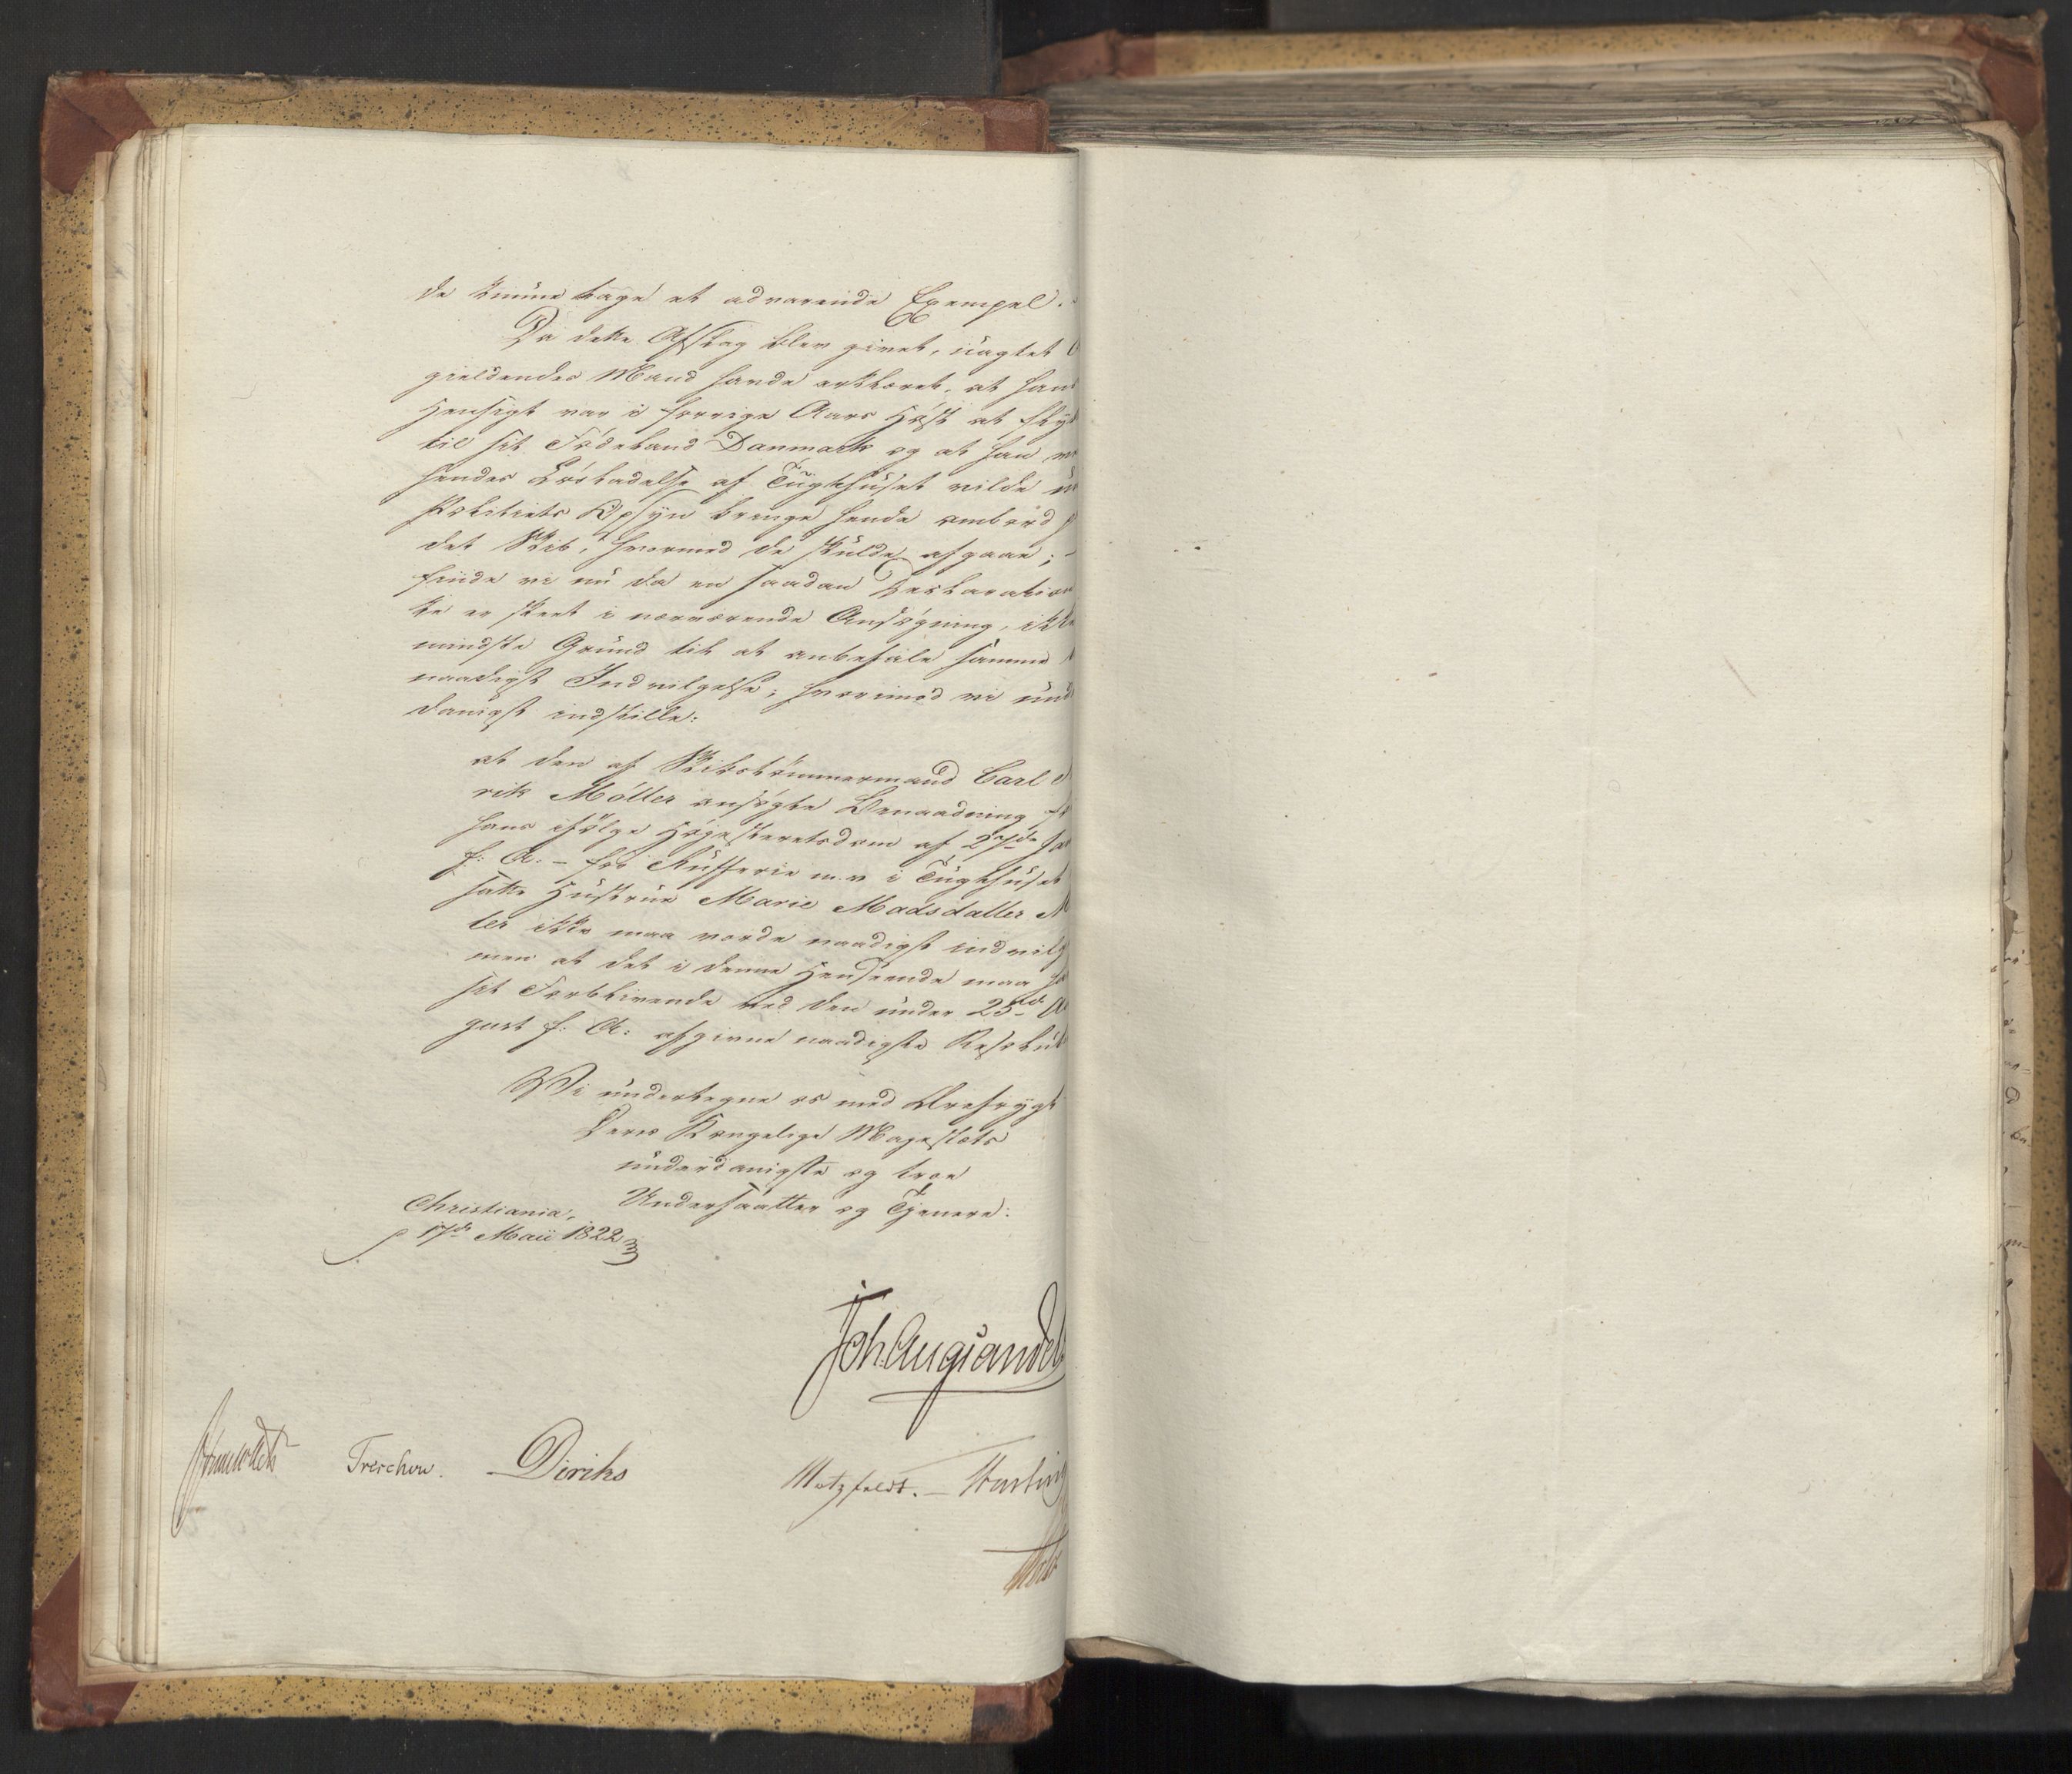 de kunne tage et advarende Exempel. -
Da dette Afslag blev givet, uagtet
gieldendes Mand havde erklæret, at hans
Hensigt var i forrige Aars Høst at flyt
til sit Fødeland Danmark og at han
hendes Løsladelse af Tugthuset vilde un
Politiets Opsyn bringe hende ombord p
det Skib, hvormed de skulde afgaae; -
finde vi nu da en saadan Declaration
ke er skeet i nærværende Ansøgning, ikke
mindste Grund til at anbefale samme
naadigst Indvilgelse; hvorimod vi und
danigst indstille:
at den af Skibstømmermand Carl
rik Møller ansøgte Benaadning f
hans ifølge Høyesteretsdom af 27de Ja
f: A: - for Rufferie m.v i Tugthuset
satte Hustrue Marie Madsdatter M
ler ikke maa vorde naadigst indvilg
men at det i denne Henseende maa ha
sit Forblivende ved den under 25de A
gust f: A: afgivne naadigste Resolut
Vi undertegne os med Ærefrygt
Deres Kongelige Majestæts
underdanigste og troe
Undersaatter og Tjenere:
Christiania,
17de Maii 1822
Joh. Aug: Sandel
Treschow. Diriks
Motzfeldt. -